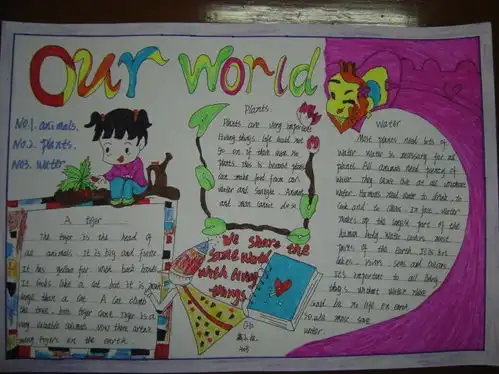 Our world
No.1. animals.
No.2. plants.
No3. Water
Plants.
Plants are very important
living things. Life could not
go on if there were no
plants. This is because plants
can make food from air.
water and sunlight. Animal
and man cannot do so.
Water
Most planes need lots of
Water. Water is necessary for all
plants. All animals need plenty of
water. They
Humans need water to drink to
cook and to clean. In fact water
makes up the largest part of the
human body. Water covers most
parts of the Earth. It's in
lakes rivers seas and
It's important to all living
things. Without water there
would be no life on earth
So we must save
water.
A tiger
The tiger is the head of
all animals. It is big and fierce
It has yellow fur with back bands
It looks like a cat. but it is
large than a cat. A cat climb
the tree, but tiger can't. Tiger is a
very valuable animals. Now there aren't
many tigers on the earth.
We share the
same world
with living
things.